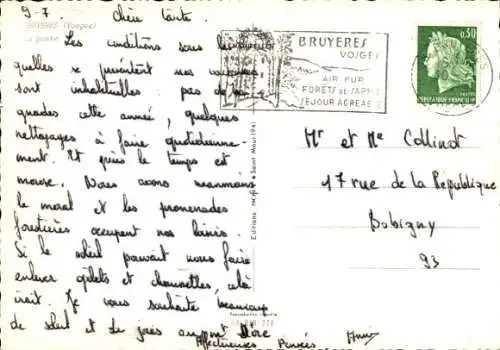 9-7 Chère tante
BRUYERES (Vosges)
La poste
Les conditions sous lesquelles
quelles se présentent nos vacances
sont inhabituelles : pas de
grandes cette année, quelques
nettoyages à faire quotidienne-
ment. Et puis le temps est
morose. Nous avons néanmoins
le moral et les promenades
forestières occupent nos loisirs.
Si le soleil pouvait nous faire
enlever gilets et chaussettes, celà
irait. Je vous souhaite beaucoup
de soleil et
Affectueuses Pensées
BRUYERES
VOSGES
AIR PUR
FORÊTS DE SAPINS
SEJOUR AGREABLE
0,30
REPUBLIQUE FRANCAISE
Mr et Me Collinot
17 rue de la République
Bobigny
93
Editions